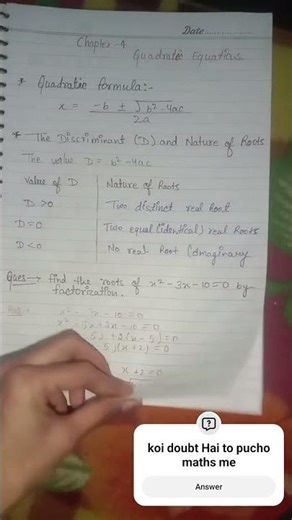 Date
Chapter-4
Quadratic Equations
* Quadratic formula:-
x = -b ± √b²-4ac
2a
* The Discriminant (D) and Nature of Roots
The value D = b²-4ac
Value of D Nature of Roots
D>0 Two distinct real Root
D=0 Two equal (identical) real Roots
D<0 No real Root (Imaginary
Ques→ find the roots of x²-3x-10=0 by
factorization.
x² - x - 10 = 0
x² - 5x + 2x - 10 = 0
5) + 2(x-5) = 0
5)(x+2) = 0
x+2=0
koi doubt Hai to pucho
maths me
Answer